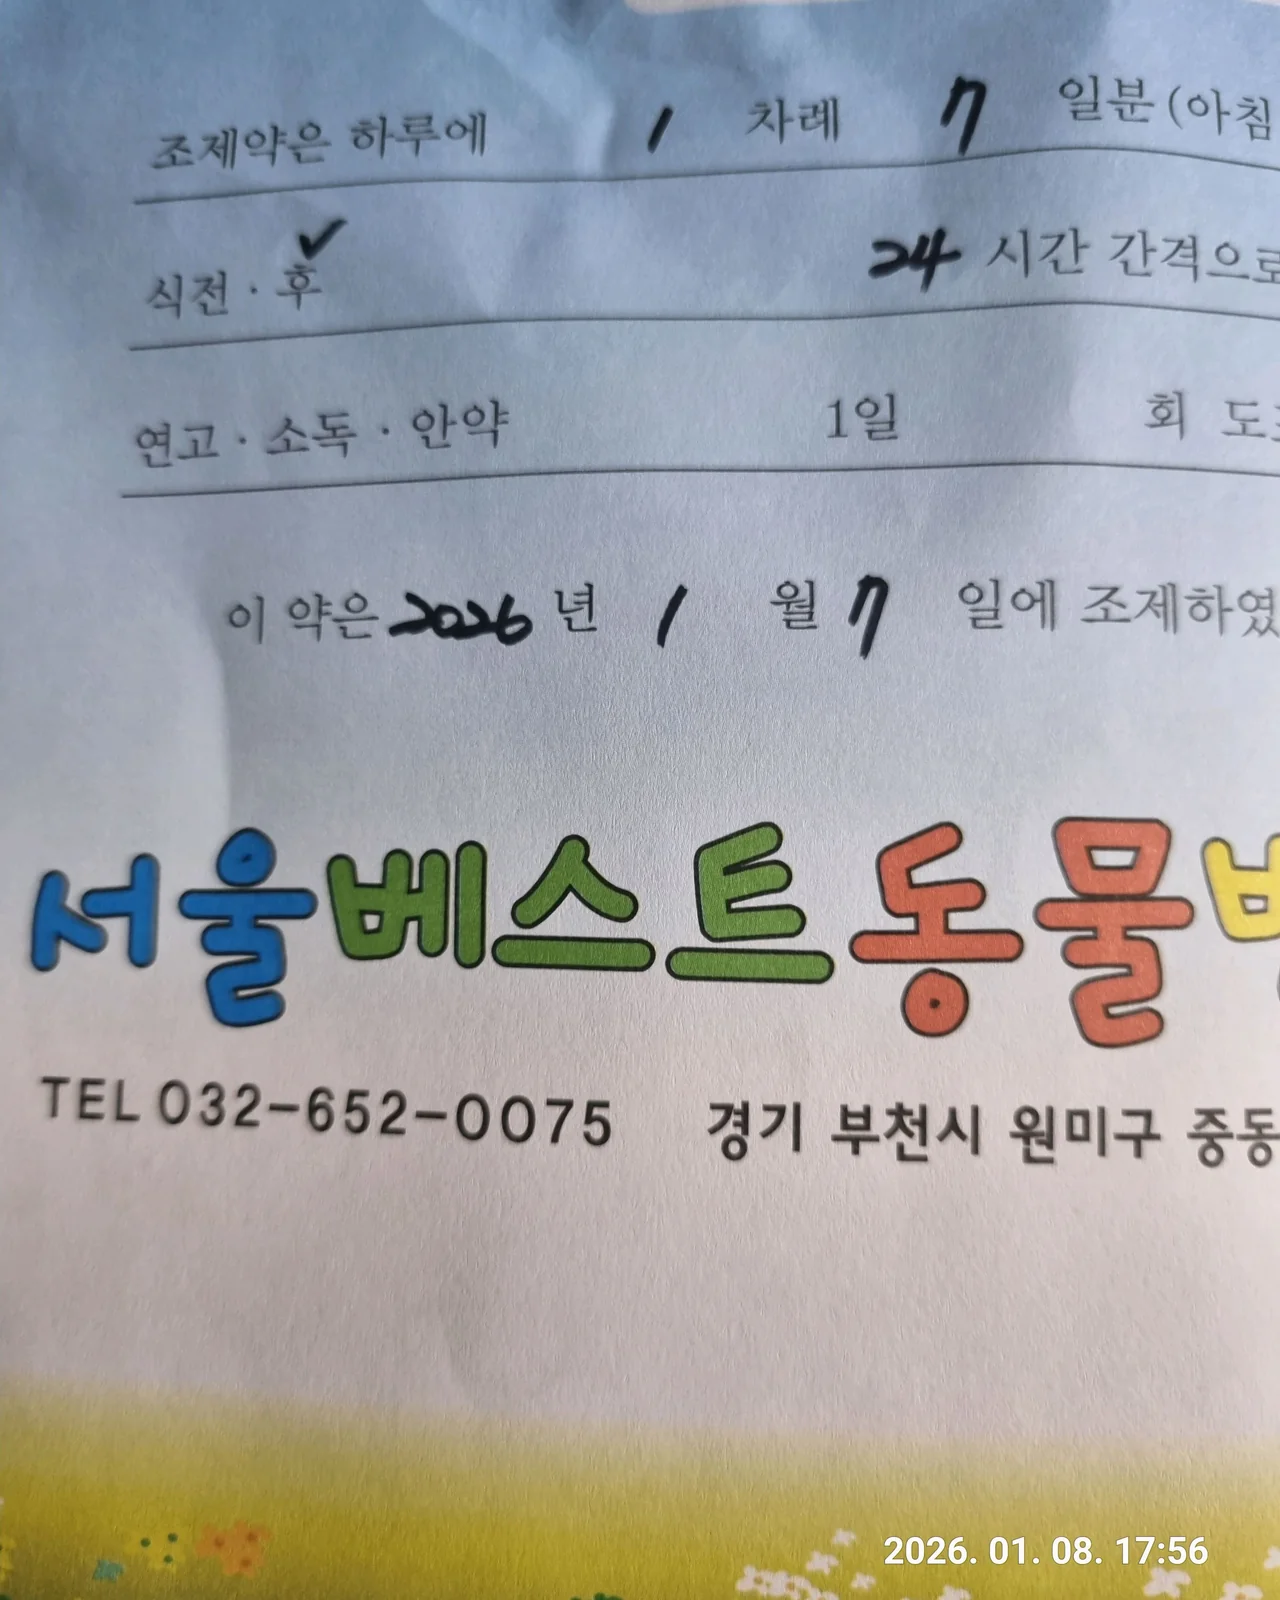 조제약은 하루에 1 차례 7 일분(아침
식전 · 후 24 시간 간격으로
연고 · 소독 · 안약 1일 회 도
이 약은 2026 년 1 월 7 일에 조제하였
서울베스트동물
TEL 032-652-0075 경기 부천시 원미구 중동
2026. 01. 08. 17:56